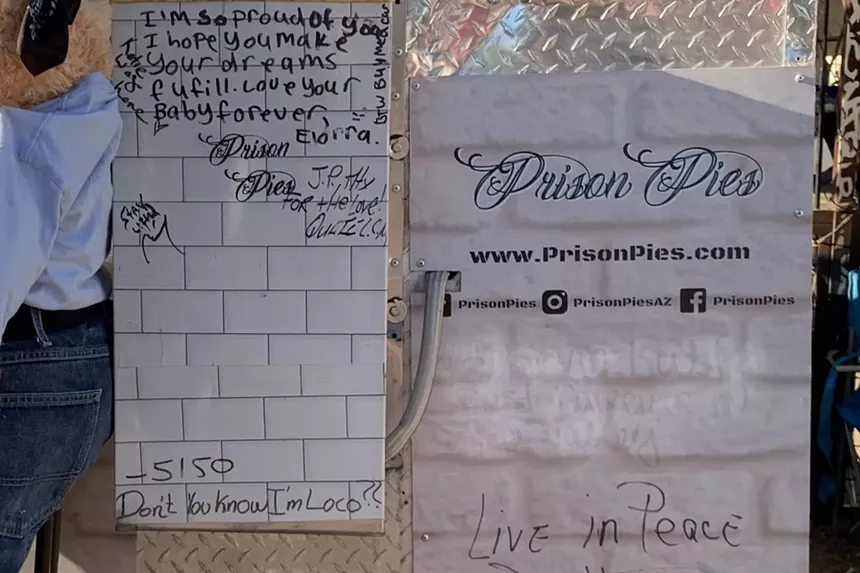 I'm so proud of you
I hope you make
your dreams
fufill. Love your
Baby forever
Eiórra.
btw Buy me a car
Prison
Pies
J.P., thx
FOR the love!
-5150
Don't You Know I'm Loco??
Prison Pies
www.PrisonPies.com
PrisonPies
PrisonPiesAZ
PrisonPies
Live in Peace